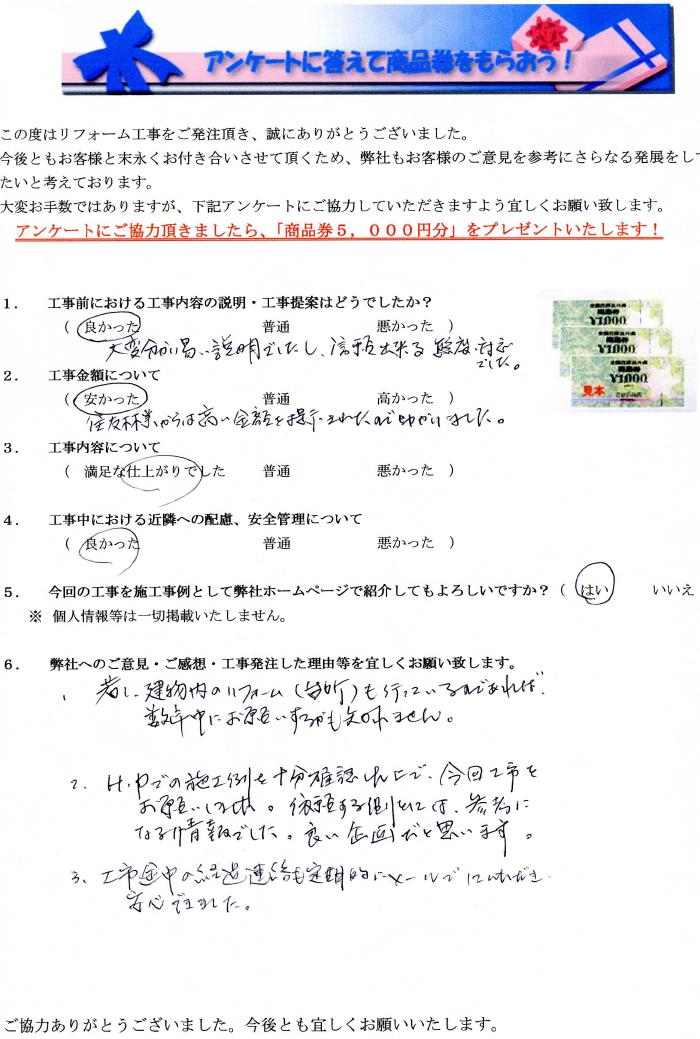 アンケートに答えて商品券をもらおう！
この度はリフォーム工事をご発注頂き、誠にありがとうございました。
今後ともお客様と末永くお付き合いさせて頂くため、弊社もお客様のご意見を参考にさらなる発展をして
たいと考えております。
大変お手数ではありますが、下記アンケートにご協力していただきますよう宜しくお願い致します。
アンケートにご協力頂きましたら、「商品券５，０００円分」をプレゼントいたします！
１．　工事前における工事内容の説明・工事提案はどうでしたか？
（　良かった　普通　悪かった　）
大変分かり易い説明でしたし、信頼出来る態度・対応
でした。
２．　工事金額について
（　安かった　普通　高かった　）
住友林業からは高い金額を提示されたので助かりました。
３．　工事内容について
（　満足な仕上がりでした　普通　悪かった　）
４．　工事中における近隣への配慮、安全管理について
（　良かった　普通　悪かった　）
５．　今回の工事を施工事例として弊社ホームページで紹介してもよろしいですか？（　はい　いいえ
※　個人情報等は一切掲載いたしません。
６．　弊社へのご意見・ご感想・工事発注した理由等を宜しくお願い致します。
1、若し、建物内のリフォーム（台所）も行っているのであれば、
数年中にお願いするかも知れません。
2、H.Pでの施工例を十分確認した上で、今回工事を
お願いしました。依頼する側としては、参考に
なる情報でした。良い企画だと思います。
3、工事途中の経過連絡も定期的にメールでいただき
安心できました。
ご協力ありがとうございました。今後とも宜しくお願いいたします。
¥1,000
¥1,000
¥1,000
見本